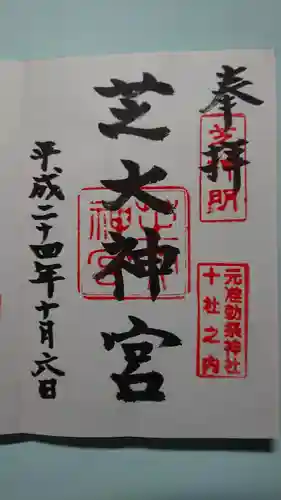 奉拝
芝神明
元准勅祭神社
十社之内
芝大神宮
芝大神宮
平成二十四年十月六日